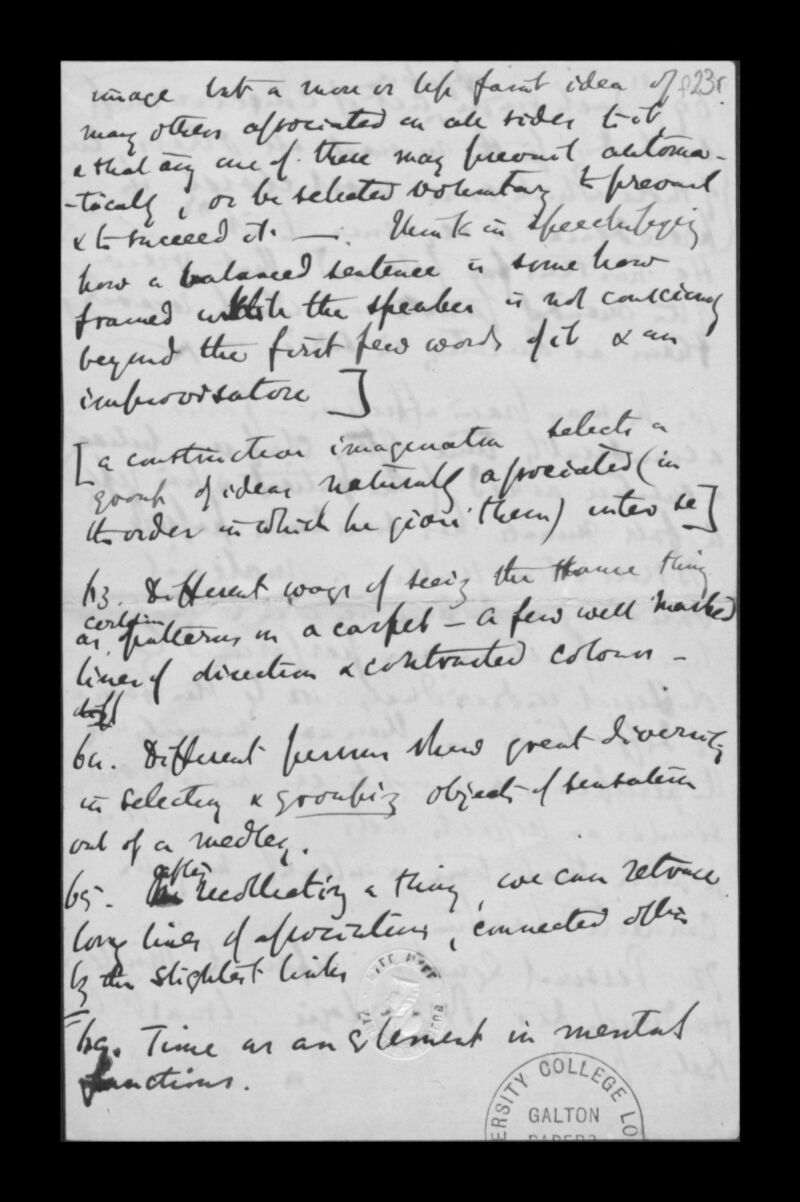 f23r
image but a more or less faint idea of
many others associated on all sides to it,
& that any one of these may present automa-
-tically, or be selected voluntary to prevail
& to succeed it. — Think in speechifying
how a balanced sentence is somehow
framed while the speaker is not conscious
beyond the first few words of it & an
improvisatore ]
[ a constructive imagination selects a
group of ideas naturally associated (in
the order in which he gives them) inter se ]
63. Different ways of seeing the same thing
certain
as patterns in a carpet – a few well marked
lines of direction & contrasted colours –
diff
64. Different persons show great diversity
in selecting & grouping objects of sensation
out of a medley.
after
65. In recollecting a thing, we can retrace
long lines of associations, connected often
by the slightest links
69. Time as an element in mental
functions.
UNIVERSITY COLLEGE LO
GALTON
PAPERS